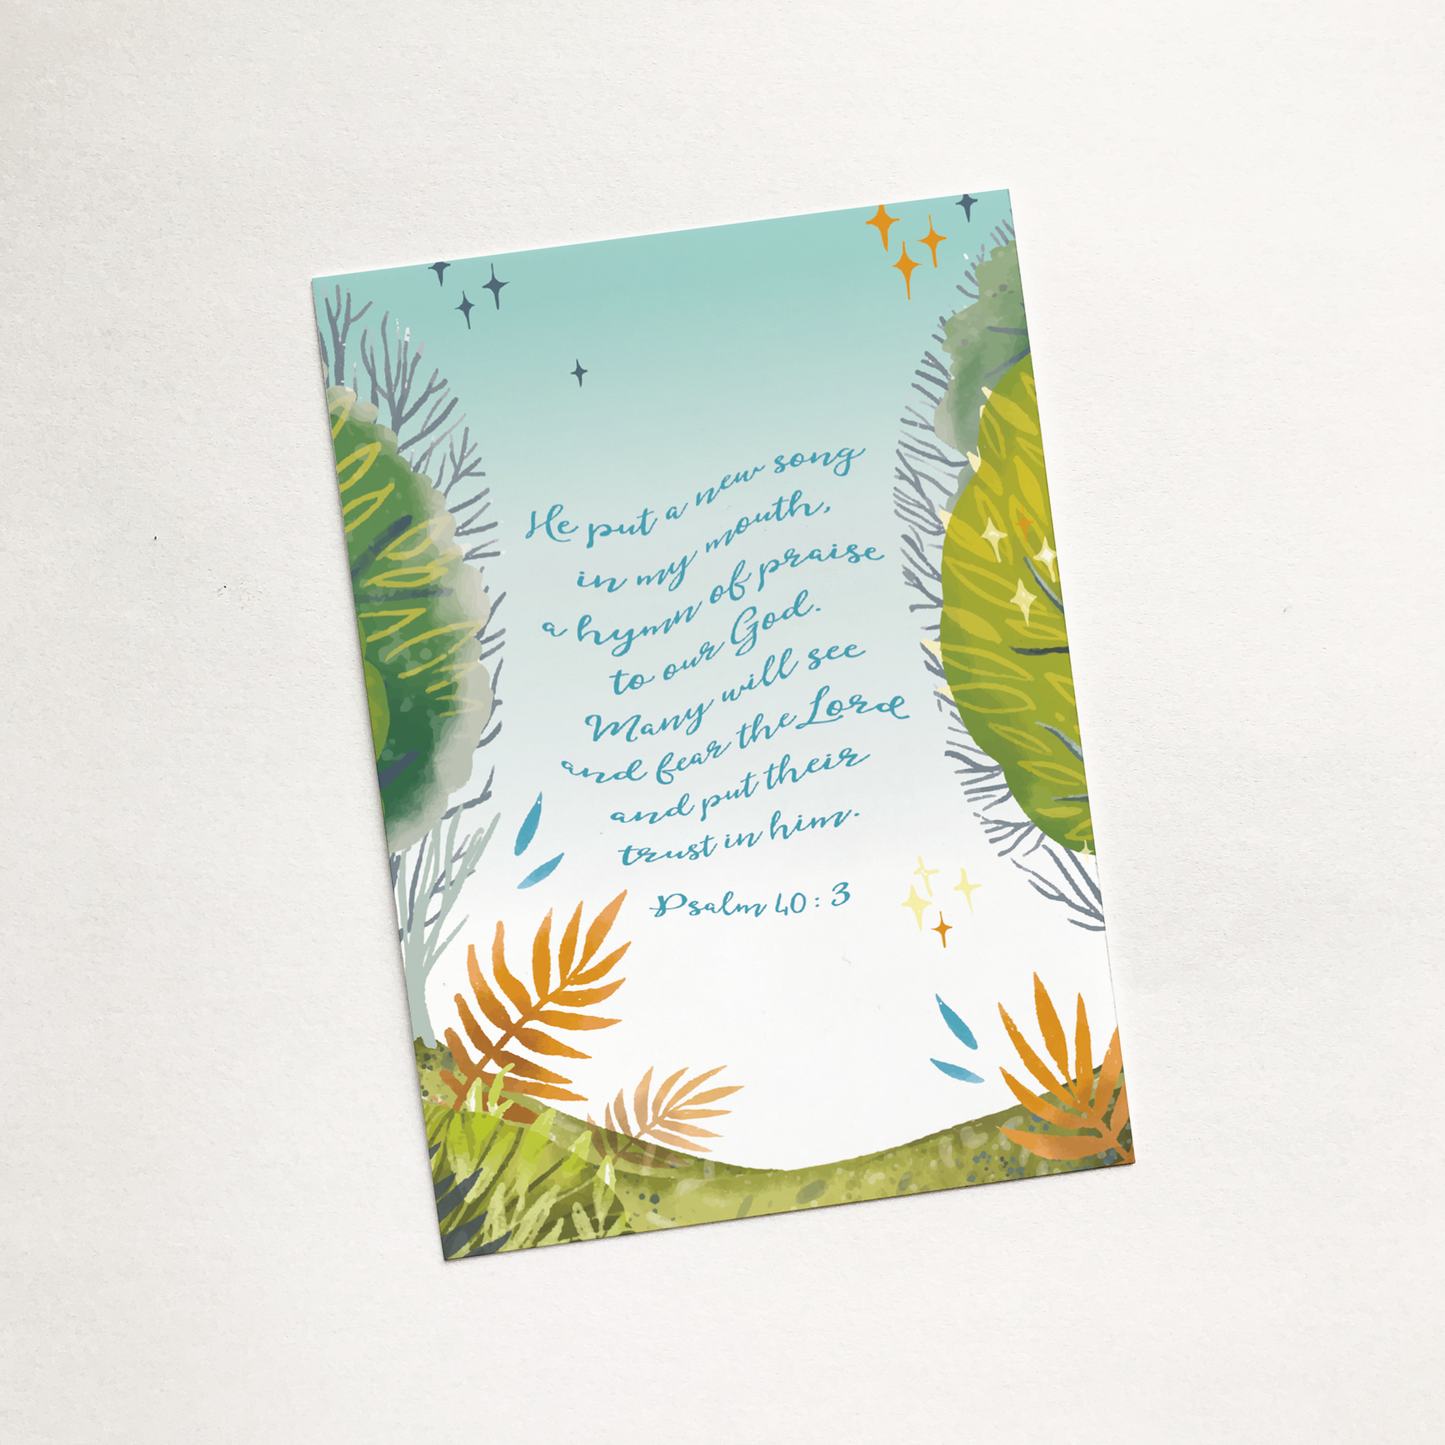 He put a new song
in my mouth,
a hymn of praise
to our God.
Many will see
and fear the Lord
and put their
trust in him.
Psalm 40:3